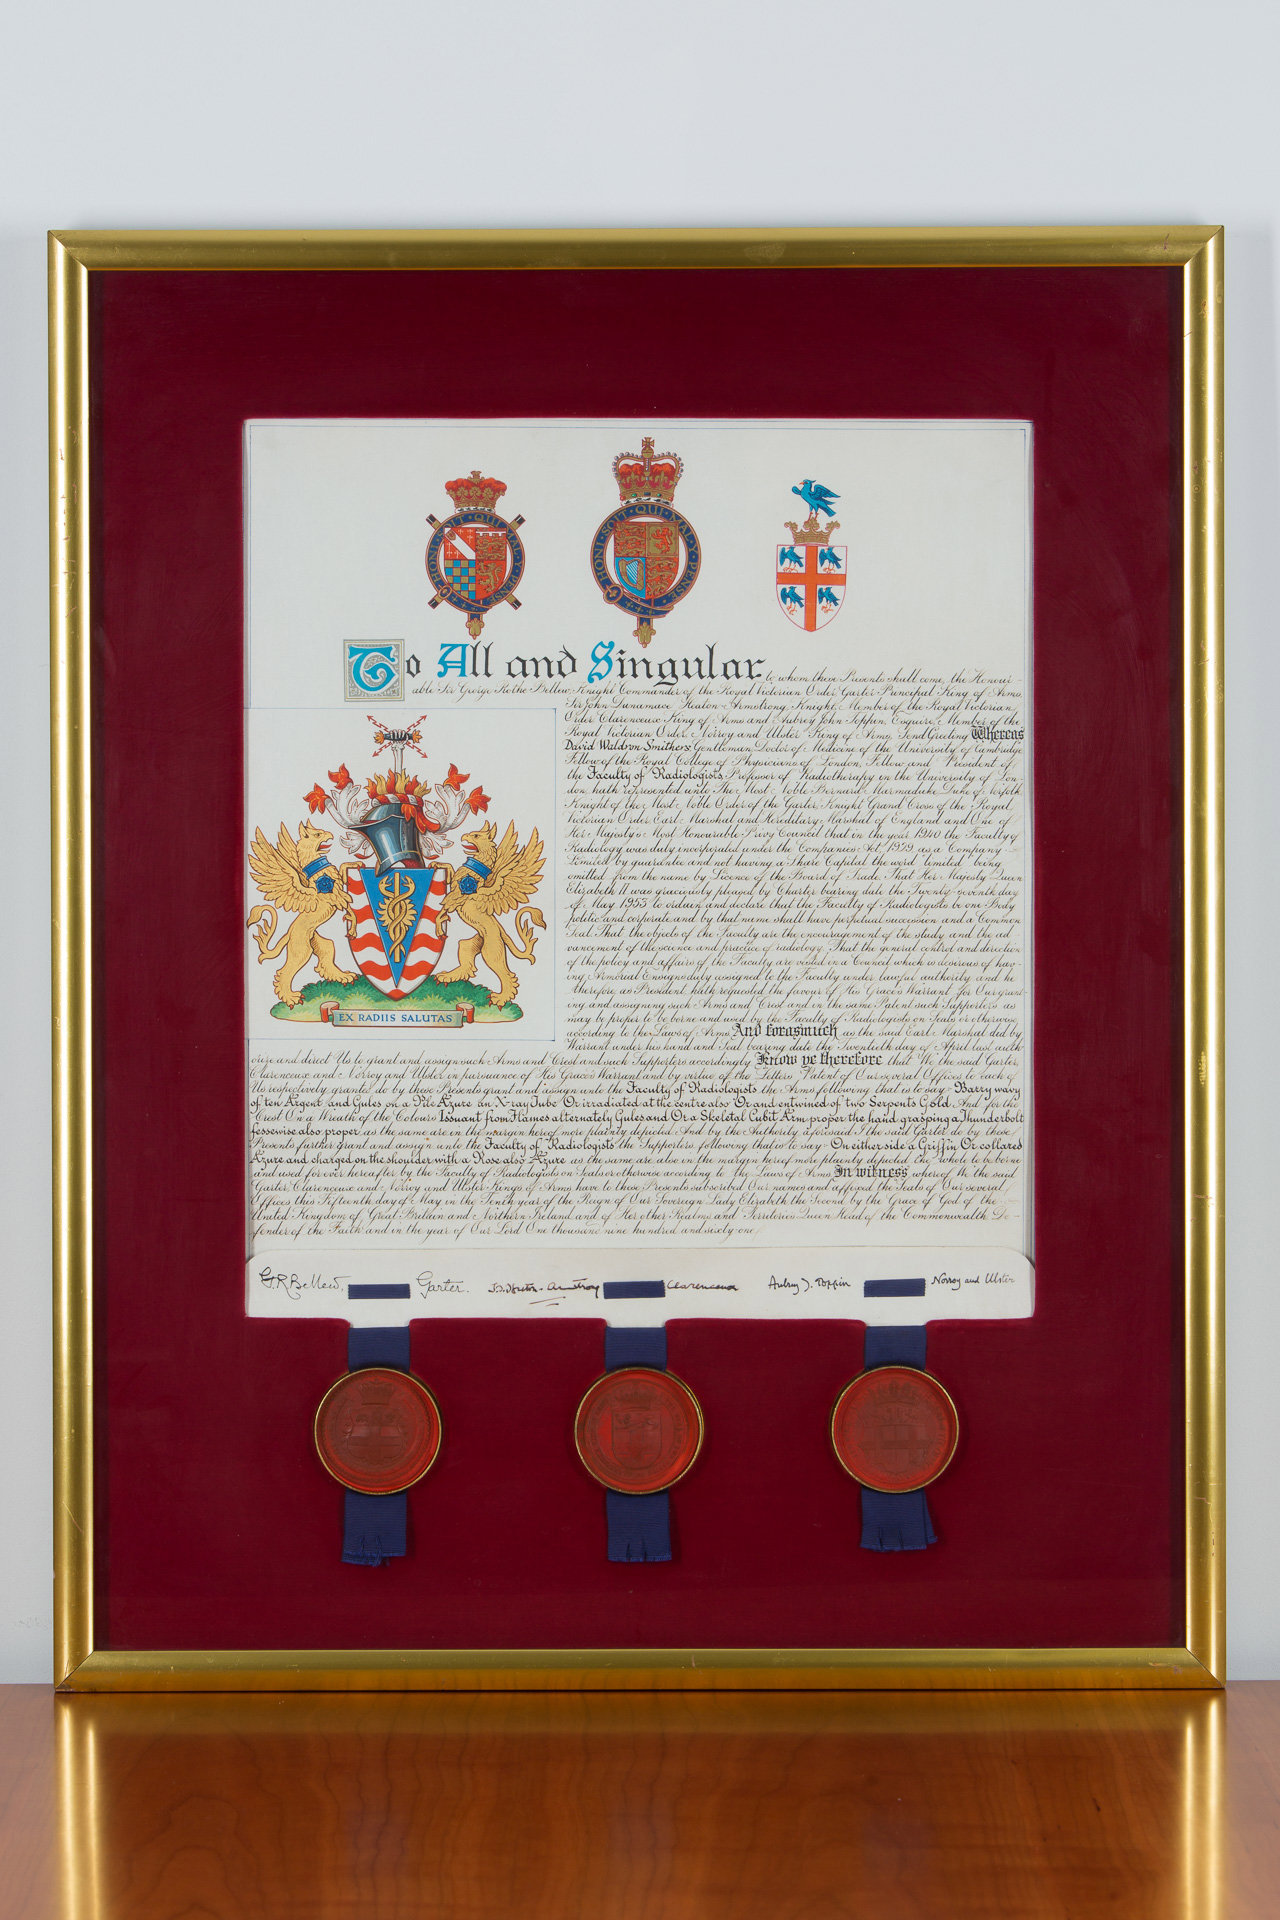 HONI · SOIT · QUI · MAL · Y · PENSE
HONI · SOIT · QUI · MAL · Y · PENSE
To All and Singular to whom these Presents shall come, the Honour-
able Sir George Rothe Bellew, Knight Commander of the Royal Victorian Order, Garter Principal King of Arms,
Sir John Dunamace Heaton-Armstrong, Knight, Member of the Royal Victorian
Order, Clarenceux King of Arms and Aubrey John Toppin, Esquire, Member of the
Royal Victorian Order, Norroy and Ulster King of Arms, Send Greeting Whereas
David Waldron Smithers, Gentleman, Doctor of Medicine of the University of Cambridge
Fellow of the Royal College of Physicians of London, Fellow and President of
the Faculty of Radiologists, Professor of Radiotherapy in the University of Lon-
don, hath represented unto The Most Noble Bernard Marmaduke Duke of Norfolk
Knight of the Most Noble Order of the Garter, Knight Grand Cross of the Royal
Victorian Order, Earl Marshal and Hereditary Marshal of England and One of
Her Majesty's Most Honourable Privy Council that in the year 1940 the Faculty of
Radiology was duly incorporated under the Companies Act, 1929 as a Company
Limited by guarantee and not having a Share Capital the word limited being
omitted from the name by Licence of the Board of Trade That Her Majesty Queen
Elizabeth II was graciously pleased by Charter bearing date the Twenty-seventh day
of May 1953 to ordain and declare that the Faculty of Radiologists be one Body
politic and corporate and by that name shall have perpetual succession and a Common
Seal That the objects of the Faculty are the encouragement of the study and the ad-
vancement of the science and practice of radiology That the general control and direction
of the policy and affairs of the Faculty are vested in a Council which is desirous of hav-
ing Armorial Ensigns duly assigned to the Faculty under lawful authority and he
therefore as President hath requested the favour of His Grace's Warrant for Our grant-
ing and assigning such Arms and Crest and in the same Patent such Supporters as
may be proper to be borne and used by the Faculty of Radiologists on Seals or otherwise
according to the Laws of Arms And forasmuch as the said Earl Marshal did by
Warrant under his hand and Seal bearing date the Twentieth day of April last auth-
EX RADIIS SALUTAS
orize and direct Us to grant and assign such Arms and Crest and such Supporters accordingly Know ye therefore that We the said Garter,
Clarenceux and Norroy and Ulster in pursuance of His Grace's Warrant and by virtue of the Letters Patent of Our several Offices to each of
Us respectively granted do by these Presents grant and assign unto the Faculty of Radiologists the Arms following that is to say:- Barry wavy
of ten Argent and Gules on a Pile Azure an X-ray Tube Or irradiated at the centre also Or and entwined of two Serpents Gold. And for the
Crest On a Wreath of the Colours Issuant from Flames alternately Gules and Or a Skeletal Cubit Arm proper the hand grasping a Thunderbolt
fessewise also proper as the same are in the margin hereof more plainly depicted And by the Authority aforesaid I the said Garter do by these
Presents further grant and assign unto the Faculty of Radiologists the Supporters following that is to say:- On either side a Griffin Or collared
Azure and charged on the shoulder with a Rose also Azure as the same are also in the margin hereof more plainly depicted the whole to be borne
and used for ever hereafter by the Faculty of Radiologists on Seals or otherwise according to the Laws of Arms In witness whereof We the said
Garter, Clarenceux and Norroy and Ulster Kings of Arms have to these Presents subscribed Our names and affixed the Seals of Our several
Offices this Fifteenth day of May in the Tenth year of the Reign of Our Sovereign Lady Elizabeth the Second by the Grace of God of the
United Kingdom of Great Britain and Northern Ireland and of Her other Realms and Territories Queen Head of the Commonwealth De-
fender of the Faith and in the year of Our Lord One thousand nine hundred and sixty-one.
G.R. Bellew, Garter. J.D. Heaton-Armstrong Clarenceux Aubrey J. Toppin Norroy and Ulster